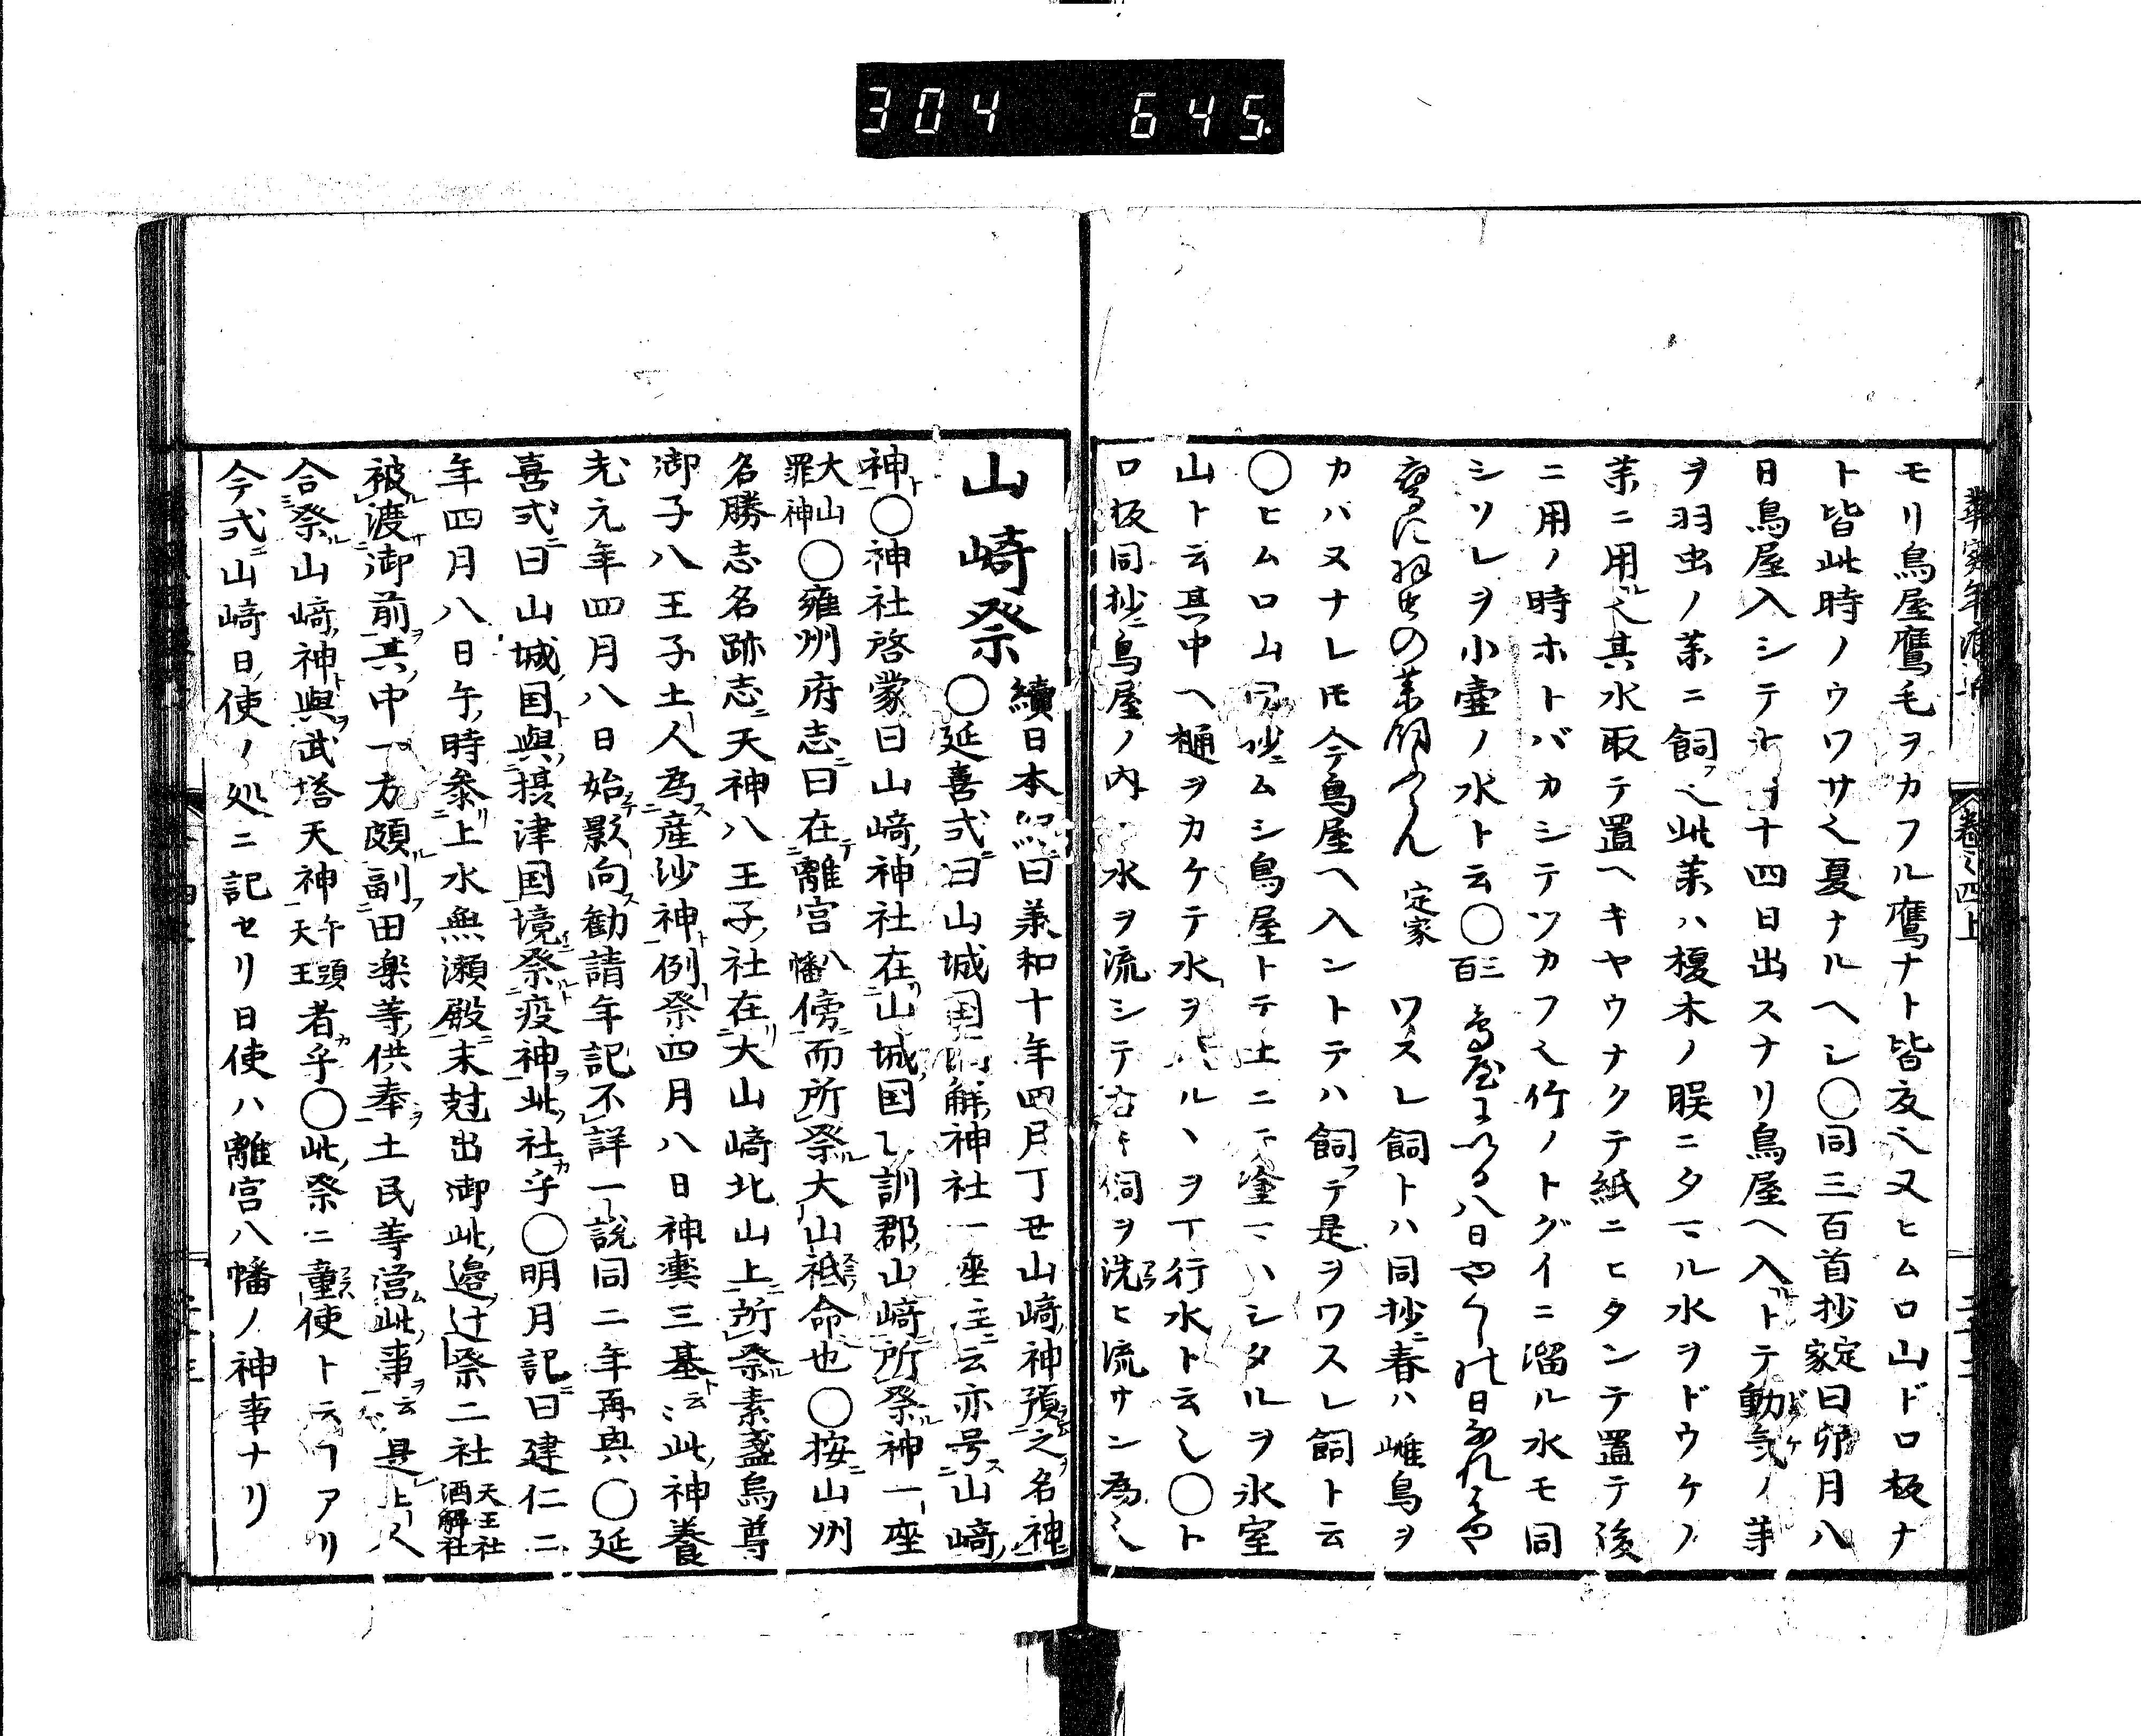 304 645.
巻之四上
モリ鳥屋鷹毛ヲカフル鷹ナト皆夜也又ヒムロ山ドロ板ナ
ト皆此時ノウワサ也夏ナルヘシ○同三百首抄定家曰卯月八
日鳥屋入シテ七月十四日出スナリ鳥屋ヘ入トテ動気ノ薬
ヲ羽虫ノ薬ニ飼フ也此薬ハ榎木ノ脵ニタマル水ヲドウケノ
薬ニ用ル也其水取テ置ヘキヤウナクテ紙ニヒタシテ置テ後
ニ用ノ時ホトバカシテツカフ也竹ノトグイニ溜ル水モ同
シソレヲ小壷ノ水ト云○三百
鷹に羽虫の薬飼らん 定家 ワスレ飼トハ同抄ニ春ハ雌鳥ヲ
カバヌナレ𪜈今鳥屋ヘ入ントテハ飼フテ是ヲワスレ飼ト云
○ヒムロ山同抄ニムシ鳥屋トテ土ニテ塗マハシタルヲ氷室
山ト云其中ヘ樋ヲカケテ水ヲ行水ト云也○ト
ロ板同抄ニ鳥屋ノ内水ヲ流シテ洗ヒ流サン為也
山崎祭 續日本紀ニ曰義和十年四月丁丑山崎神預之名神
○延喜式ニ曰山城国酒解神社一座注ニ云亦号ス山崎
神ト○神社啓蒙曰山崎神社在山城国乙訓郡山崎所祭ル神一座
大山罪神○雍州府志ニ曰在離宮八幡傍ニ而所祭ル大山祇命也○按ニ山州
名勝志名跡志ニ天神八王子社在リ大山崎北山上ニ所祭ル素盞烏尊
御子八王子土人為ス産沙神ト例祭四月八日神輿三基ト云々此神養
老元年四月八日始テ影向ス勧請年記不詳一説同二年再興○延
喜式ニ曰山城国與摂津国境祭疫神ヲ此社カ乎○明月記ニ曰建仁二
年四月八日午時参リ上水無瀬殿ニ末尅出御此邉辻祭二社天王社酒解社
被渡御前ヲ其中一方頗ル副フ田楽等供奉ヲ土民等営ム此事ヲ云是上人
合祭ル山崎神與武塔天神午頭天王者カ乎○此祭ニ童使ト云フアリ
今弐ニ山崎日使ノ処ニ記セリ日使ハ離宮八幡ノ神事ナリ